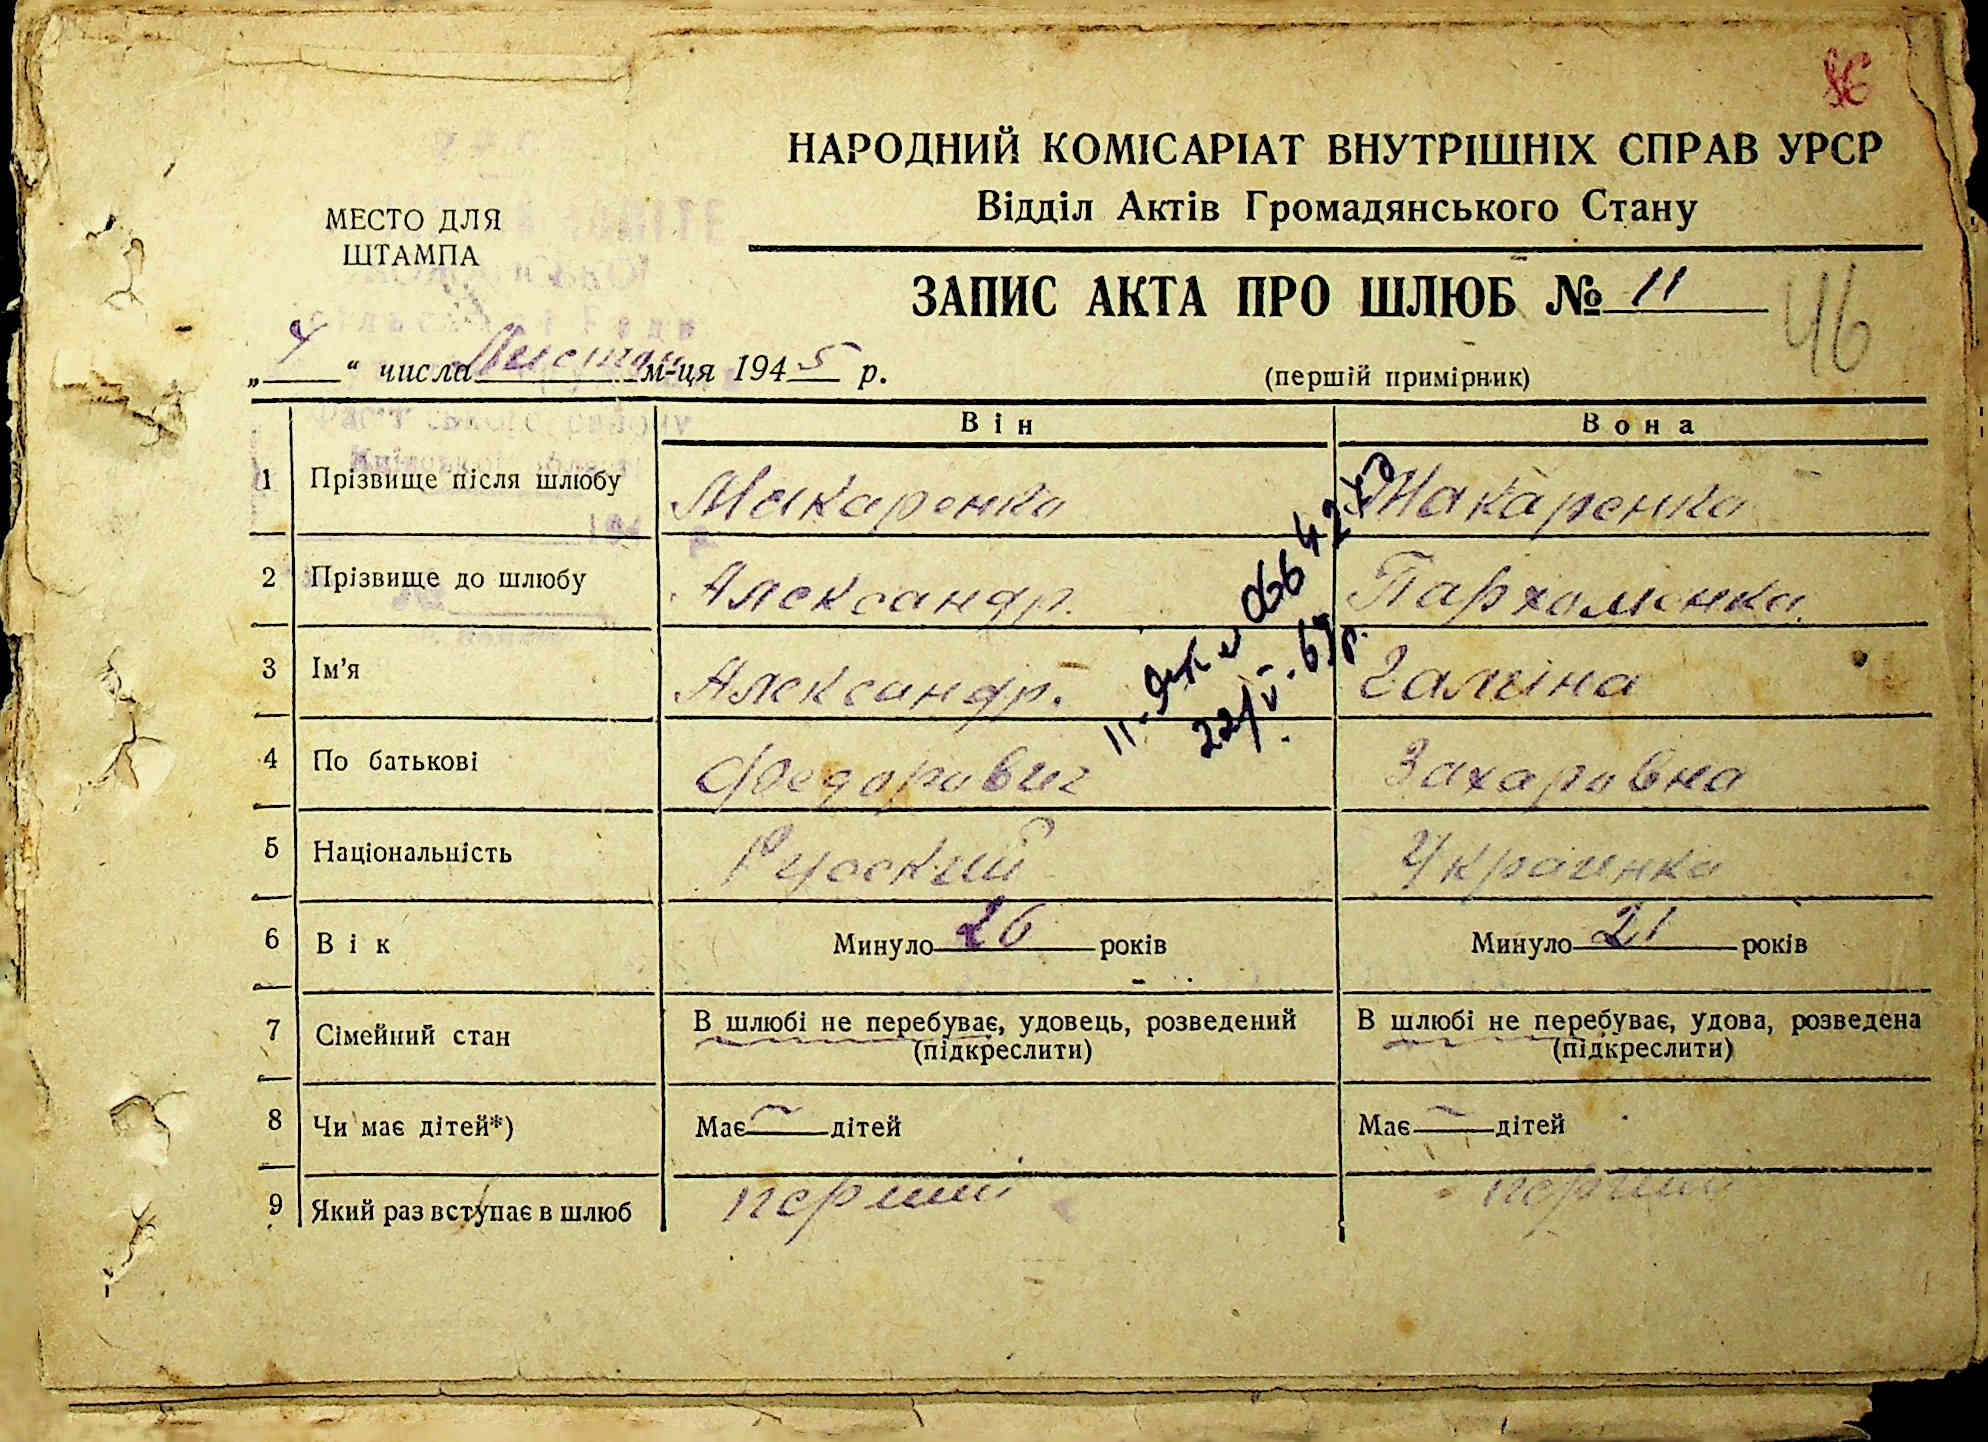 86
НАРОДНИЙ КОМІСАРІАТ ВНУТРІШНІХ СПРАВ УРСР
Відділ Актів Громадянського Стану
МЕСТО ДЛЯ
ШТАМПА
ЗАПИС АКТА ПРО ШЛЮБ № 11
46
„ 4 “ числа Листоп м-ця 1945 р.
(першій примірник)
Він Вона
1 Прізвище після шлюбу Макаренко Макаренко
2 Прізвище до шлюбу Александр. Пархоменко
3 Ім'я Александр. Галина
4 По батькові Федорович Захаровна
5 Національність Русский Украинка
6 Вік Минуло 26 років Минуло 21 років
7 Сімейний стан В шлюбі не перебуває, удовець, розведений В шлюбі не перебуває, удова, розведена
(підкреслити) (підкреслити)
8 Чи має дітей*) Має — дітей Має — дітей
9 Який раз вступає в шлюб перший перший
22/V-69р.